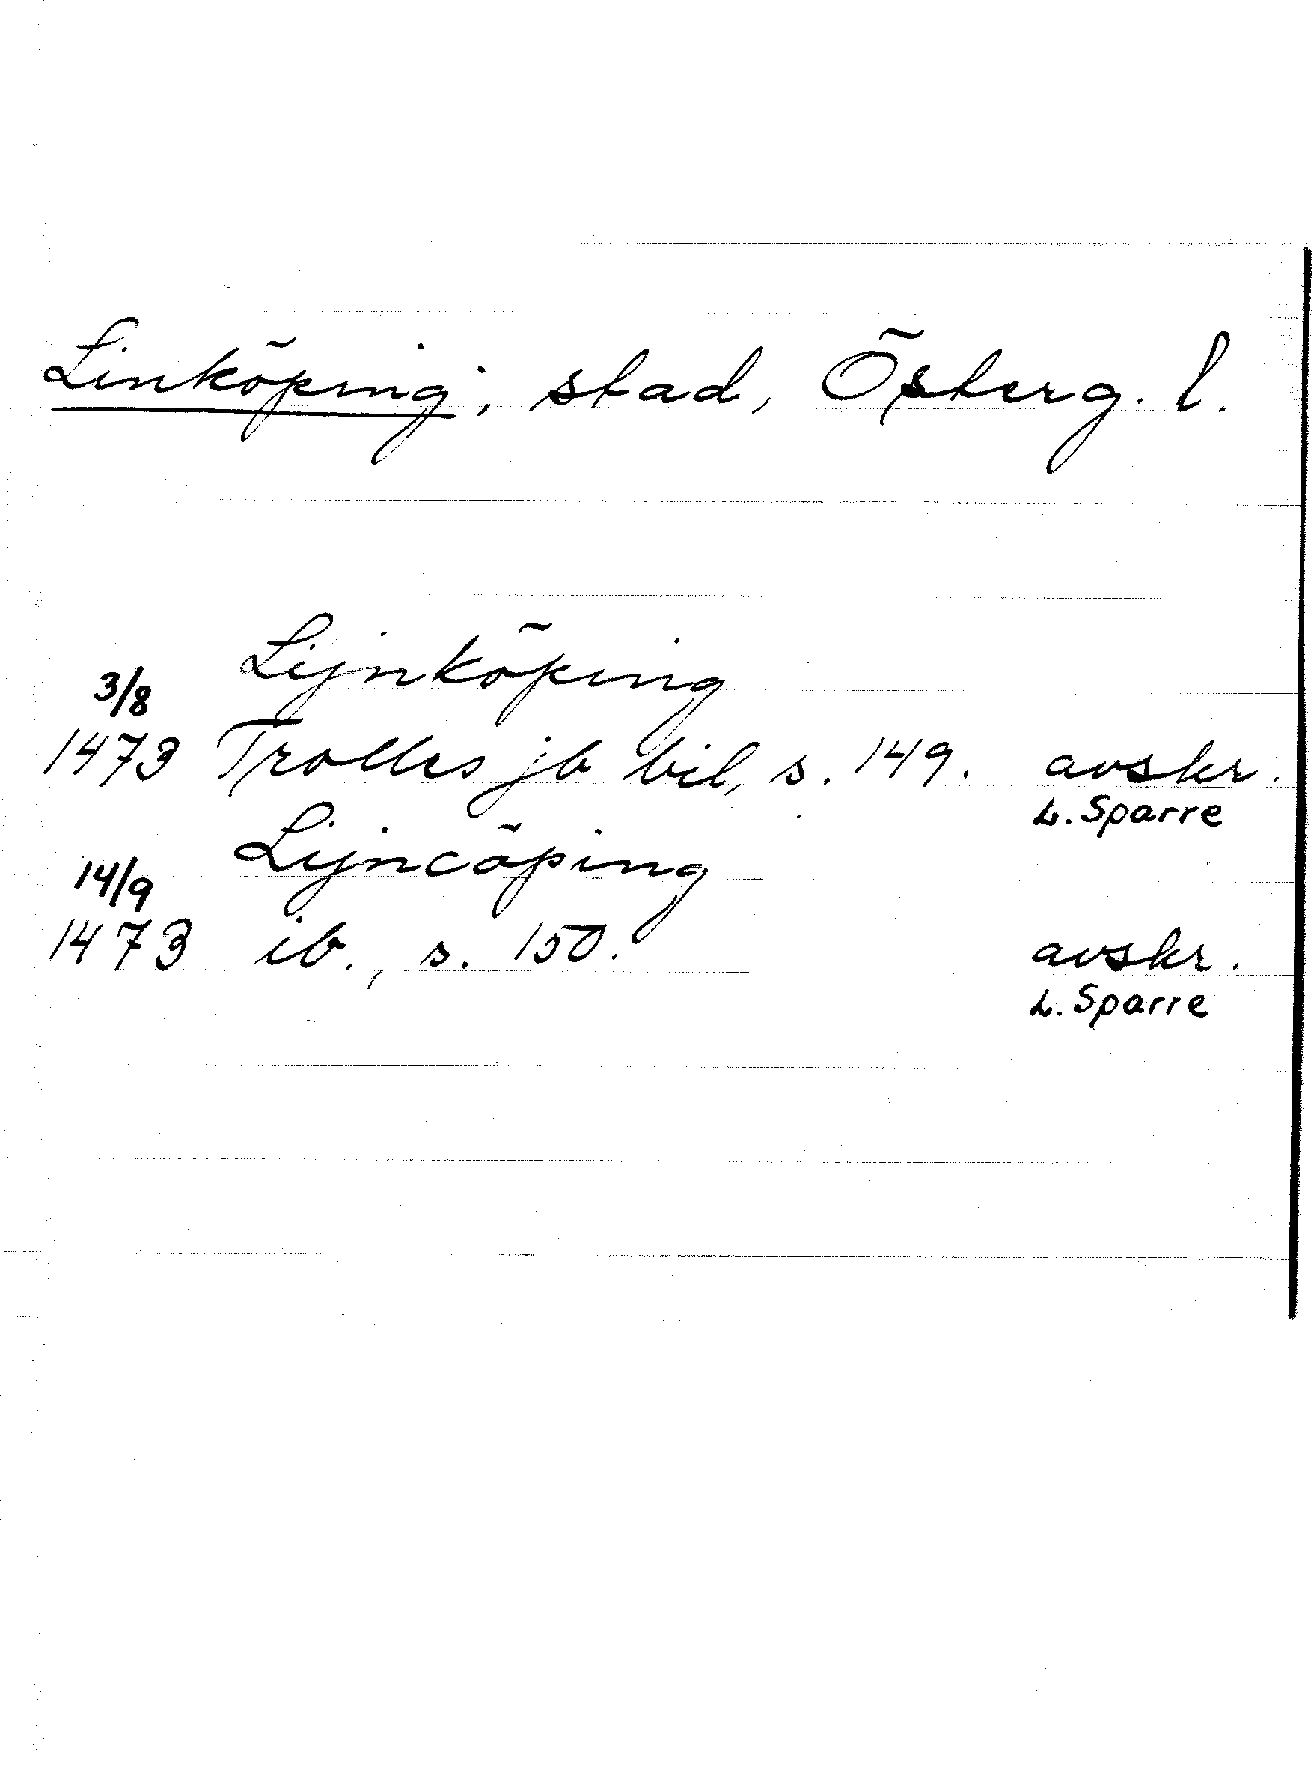 Linköping, stad, Österg. l.
Lijnköping
3/8
1473 Trolles jb bil, s. 149. avskr.
L. Sparre
Lijncöping
14/9
1473 ib., s. 150. avskr.
L. Sparre